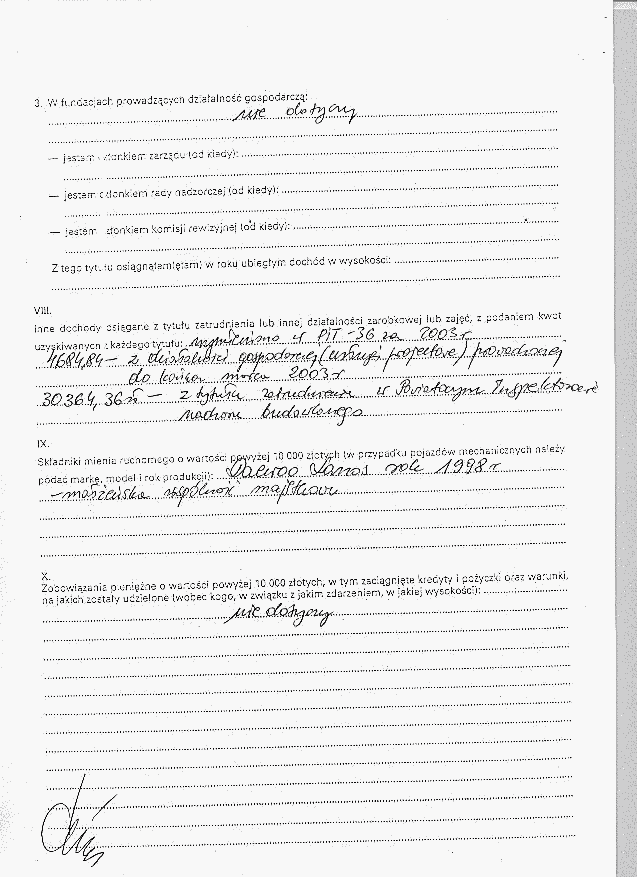 3. W fundacjach prowadzących działalność gospodarczą:
nie dotyczy
— jestem członkiem zarządu (od kiedy):
— jestem członkiem rady nadzorczej (od kiedy):
— jestem członkiem komisji rewizyjnej (od kiedy):
Z tego tytułu osiągnąłem(ęłam) w roku ubiegłym dochód w wysokości:
VIII.
Inne dochody osiągane z tytułu zatrudnienia lub innej działalności zarobkowej lub zajęć, z podaniem kwot
uzyskiwanych z każdego tytułu: w PIT-36 za 2003 r
4684,84 — z działalności gospodarczej (usługi projektowe) prowadzonej
do końca marca 2003 r
30364,36 zł — z tytułu zatrudnienia w Powiatowym Inspektoracie
nadzoru budowlanego
IX.
Składniki mienia ruchomego o wartości powyżej 10 000 złotych (w przypadku pojazdów mechanicznych należy
podać markę, model i rok produkcji): Daewoo Lanos rok 1998 r
— małżeńska wspólność majątkowa
X.
Zobowiązania pieniężne o wartości powyżej 10 000 złotych, w tym zaciągnięte kredyty i pożyczki oraz warunki,
na jakich zostały udzielone (wobec kogo, w związku z jakim zdarzeniem, w jakiej wysokości):
nie dotyczy